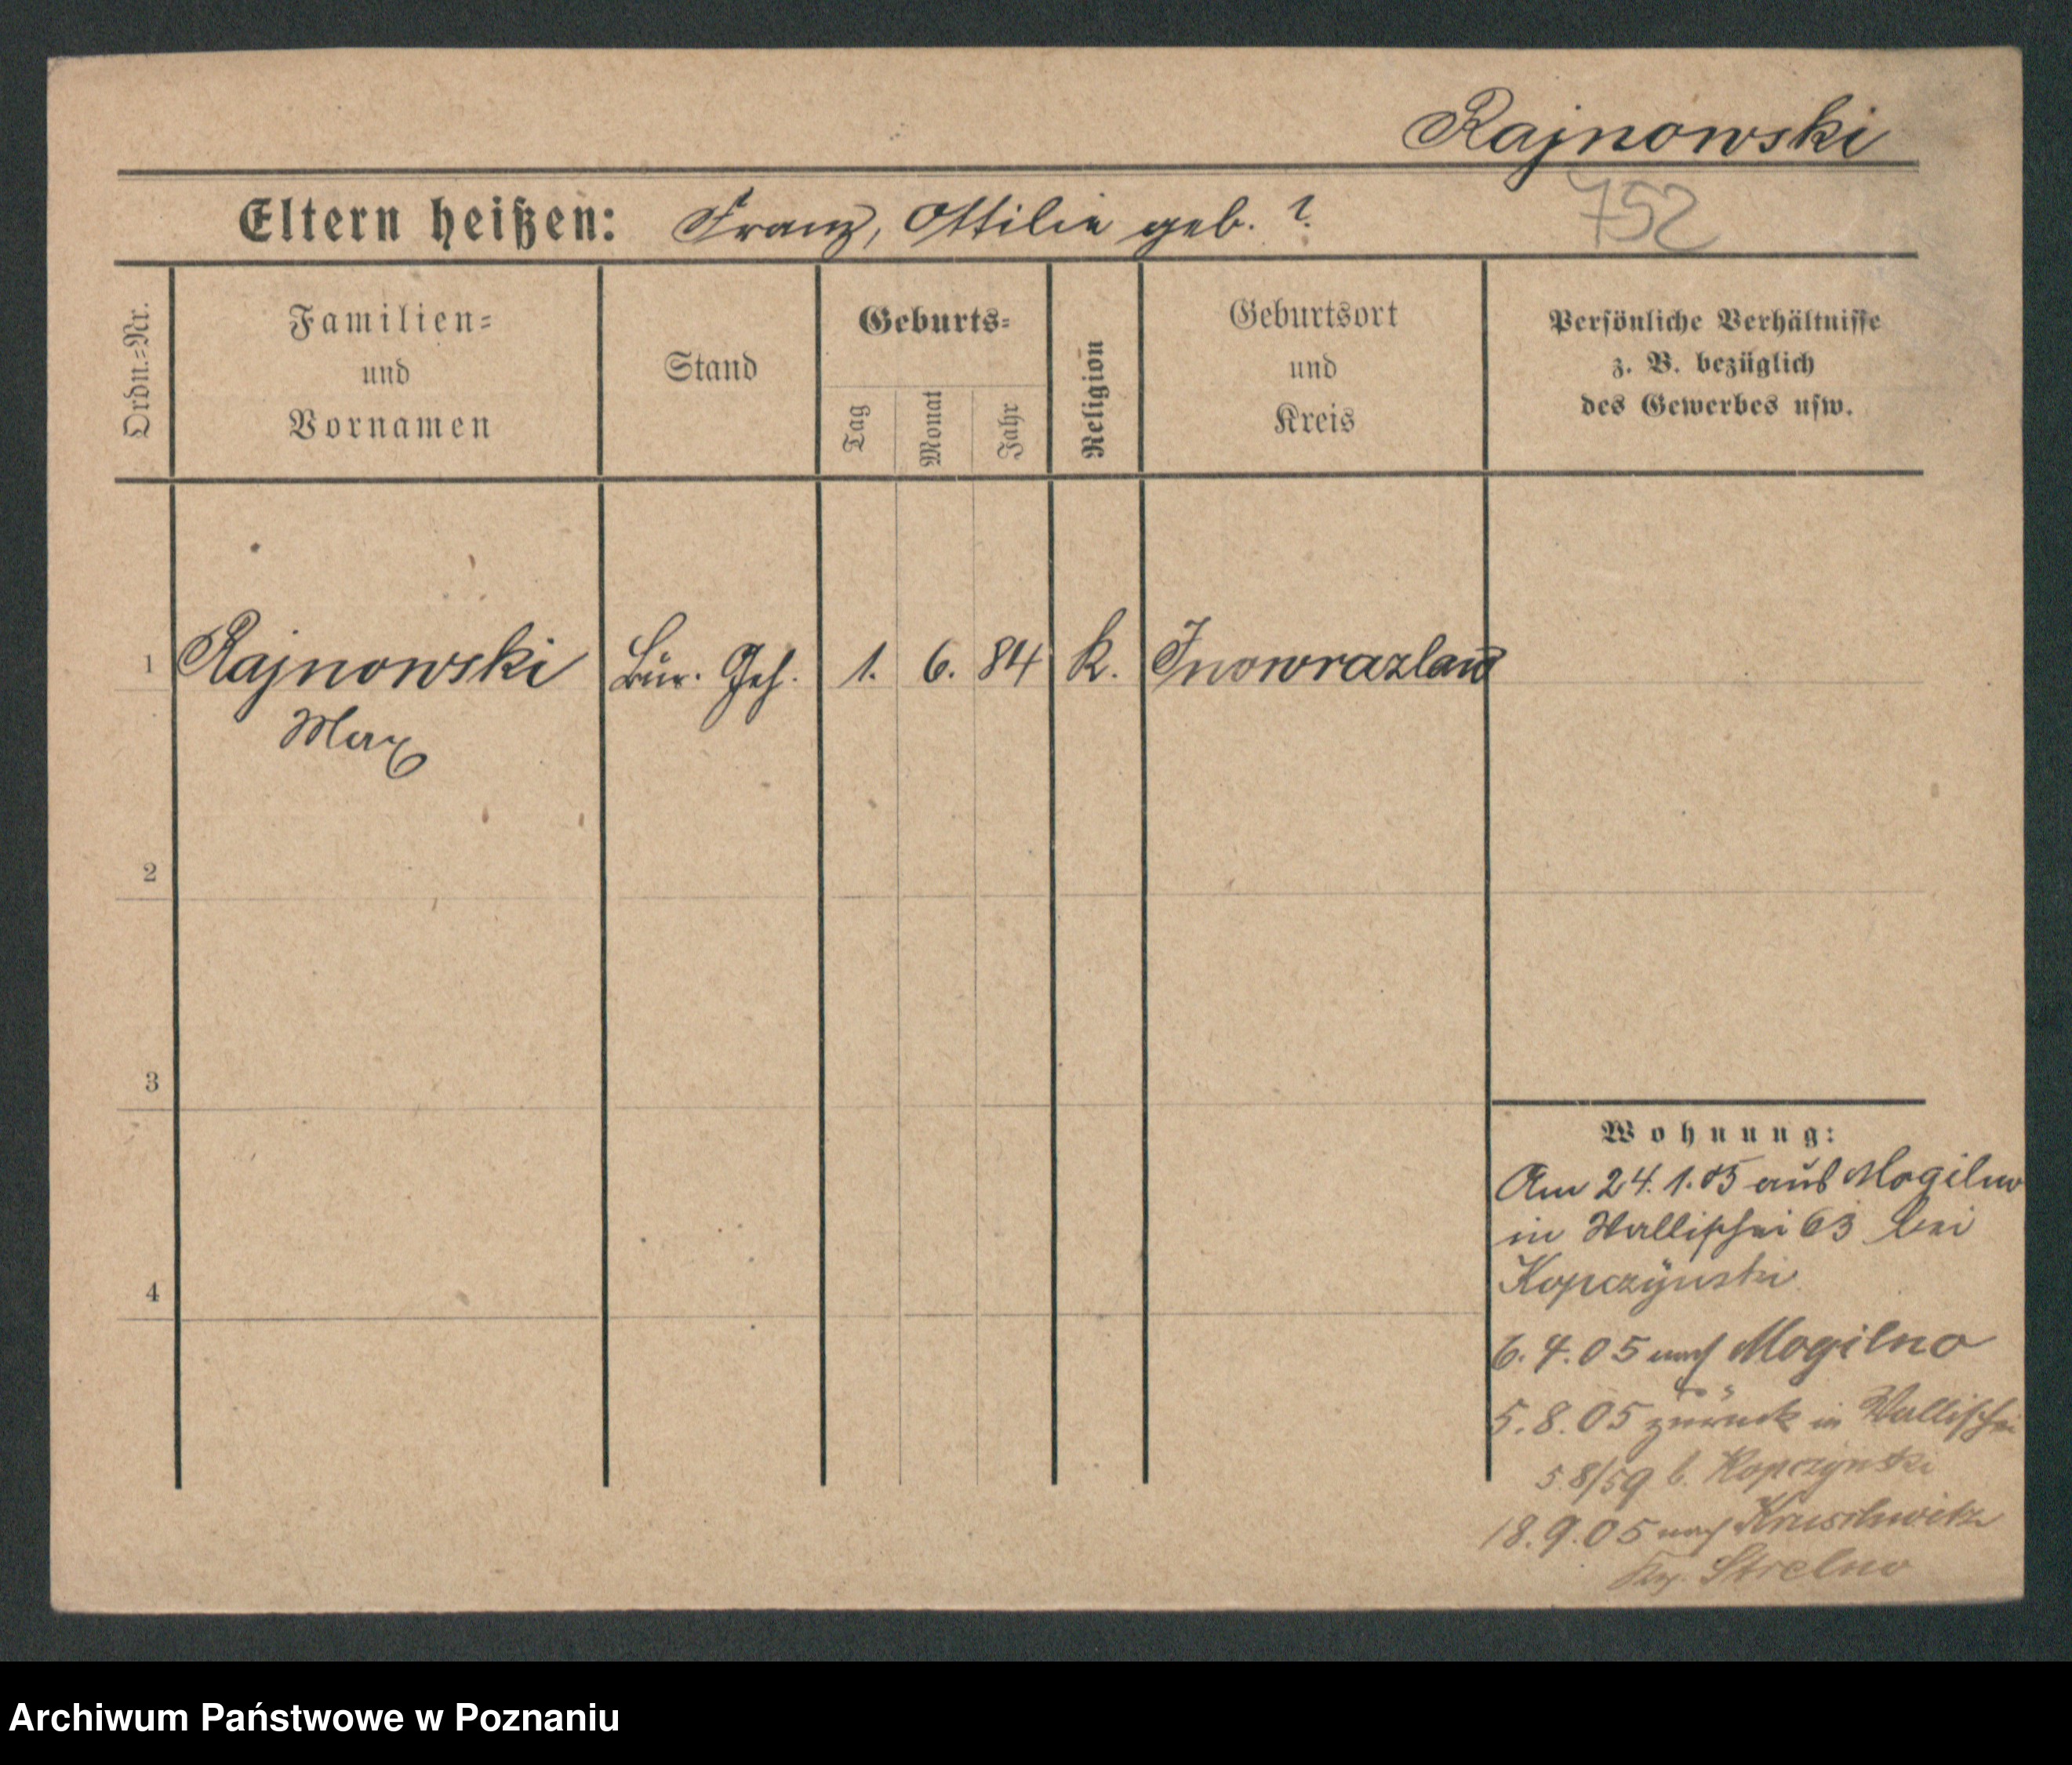 Rajnowski
752
Eltern heißen: Franz, Ottilie geb. ?
Ordn.=Nr.
Familien=
und
Vornamen
Stand
Geburts=
Tag
Monat
Jahr
Religion
Geburtsort
und
Kreis
Persönliche Verhältnisse
z. B. bezüglich
des Gewerbes usw.
1 Rajnowski Bür. Geh. 1. 6. 84 k. Inowrazlaw
Max
2
3
4
Wohnung:
Am 24.1.05 aus Mogilno
in Wallischei 63 bei
Kopczynski
6.4.05 nach Mogilno
5.8.05 zurück in Wallischei
58/59 b. Kopczynski
18.9.05 nach Kruschwitz
Strelno
Archiwum Państwowe w Poznaniu